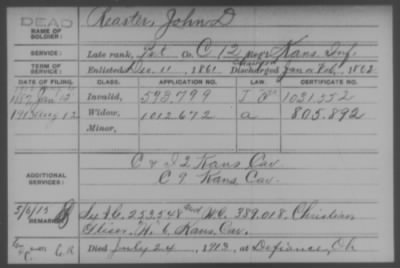 DEAD
NAME OF SOLDIER: Reaster, John D
SERVICE: Late rank, Pvt Co. C 12 Kans Inf.
TERM OF SERVICE: Enlisted Dec. 11, 1861 Discharged Jan
DATE OF FILING. CLASS. APPLICATION NO. CERTIFICATE NO.
1887 Jan 13 Invalid, 598.799 1031.352
1913 Aug 12 Widow, 1012.672 a 805.892
Minor,
ADDITIONAL SERVICES: C & I 2 Kans Cav.
C 9 Kans Cav.
3/6/15 232548 W.C. 389.018, Christian
Kans. Cav.
Died July 24, 1913, at Defiance, Oh